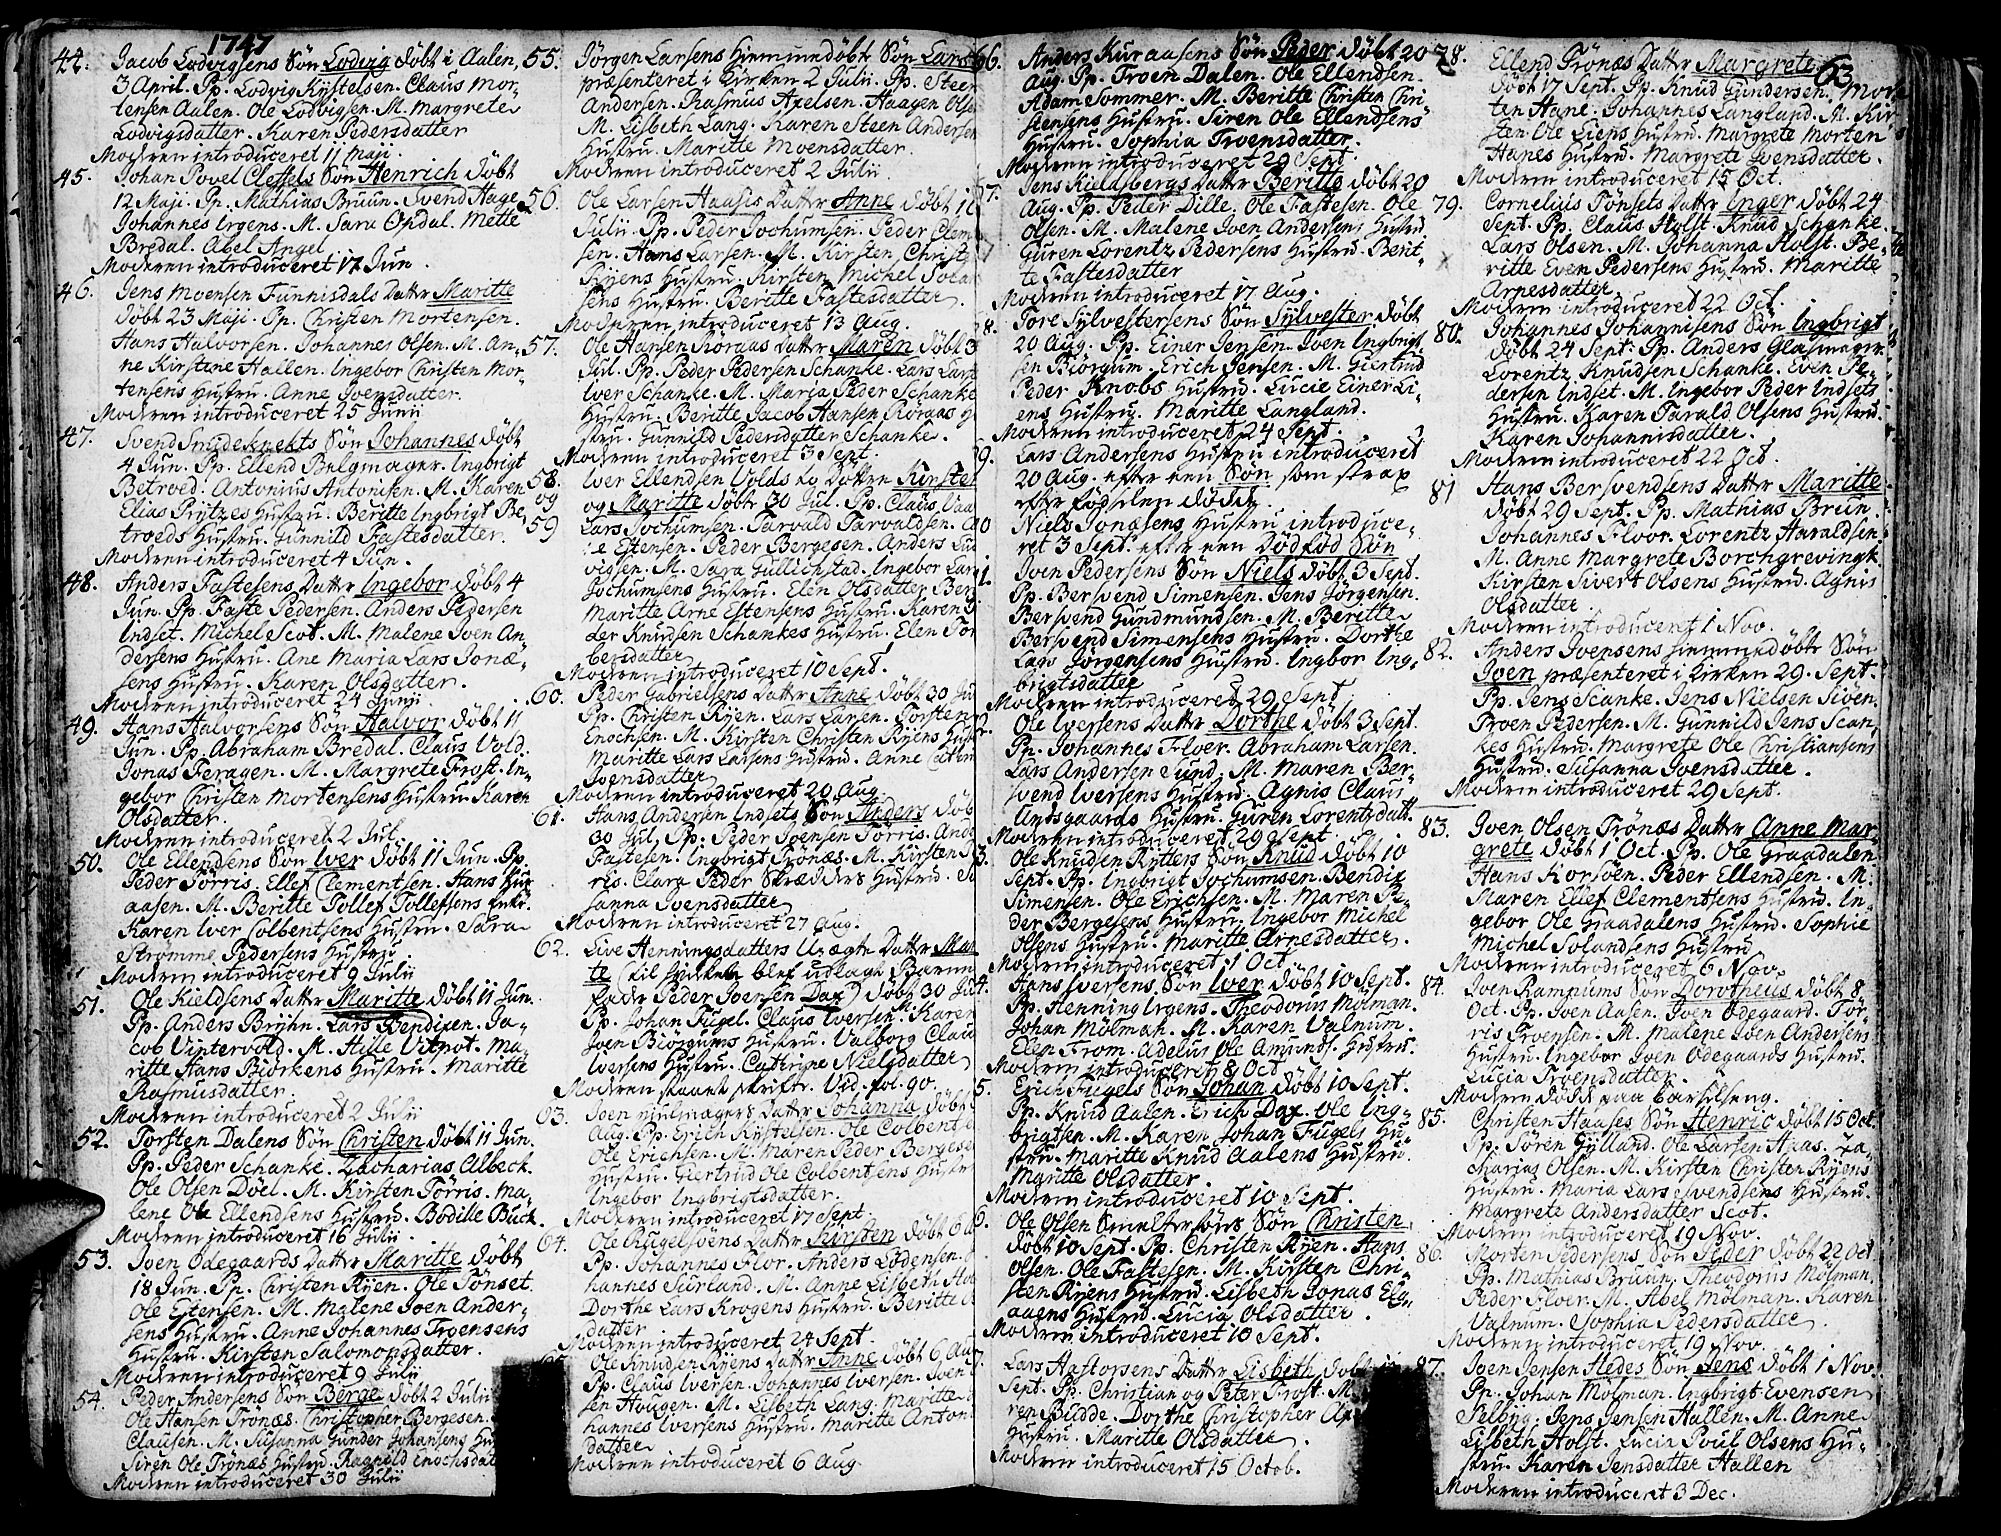 1747
44. Jacob Lodvigsens Søn Lodvig døbt i Aalen,
3 April. Pp. Lodvig Kystelsen. Claus Mor-
tensen Aalen. Ole Lodvigsen. M. Margrete
Lodvigsdatter. Karen Pedersdatter
Moderen introduceret 11 Maji.
45. Johan Povel Cletzels Søn Henrich døbt
12 Maji. Pp. Mathias Bruun. Svend Aage
Johannes Irgens. M. Sara Opdal. Mette
Bredal. Abel Angel
Moderen introduceret 17 Jun.
46. Jens Moensen Funnisdals Datter Maritte
døbt 23 Maji. Pp. Christen Mortensen.
Hans Halvorsen. Johannes Olsen. M. An-
ne Kirstene Hallen. Ingebor Christen Mor-
tensens Hustru. Anne Joensdatter.
Moderen introduceret 25 Junii
47. Svend Smideknekts Søn Johannes døbt
4 Jun. Pp. Ellend Belgmager. Ingbrigt
Betroed. Antonius Antonisen. M. Karen
Elias Prytzes Hustru. Beritte Ingbrigt Be-
troeds Hustru. Gunnild Fastesdatter.
Moderen introduceret 4 Jun.
48. Anders Fastesens Datter Ingebor døbt 4
Jun. Pp. Faste Pedersen. Anders Pedersen
Indset. Michel Scot. M. Malene Joen An
dersens Hustru. Ane Maria Lars Jonæ-
sens Hustru. Karen Olsdatter.
Moderen introduceret 24 Junii.
49. Hans Halvorsens Søn Halvor døbt 11
Jun. Pp. Abraham Bredal. Claus Vold.
Jonas Feragen. M. Margrete Frost. In-
gebor Christen Mortensens Hustru. Karen
Olsdatter.
Moderen introduceret 2 Jul.
50. Ole Ellendsens Søn Iver døbt 11 Jun. Pp.
Peder Tørris. Ellef Clementsen. Hans Kur
aasen. M. Beritte Tollef Tollefsens Enke.
Karen Iver Colbentsens Hustru. Sara
Strømme Pedersens Hustru.
Moderen introduceret 9 Julii
51. Ole Kieldsens Datter Maritte døbt 11 Jun.
Pp. Anders Bryhn. Lars Bendixen. Ja-
cob Vintervold. M. Hille Vitnot. Ma-
ritte Hans Biørkens Hustru. Maritte
Rasmusdatter.
Moderen introduceret 2 Julii
52. Torsten Dalens Søn Christen døbt 11 Jun.
Pp. Peder Schanke. Zacharias Albeck.
Ole Olsen Døel. M. Kirsten Tørris. Ma-
lene Ole Ellendsens Hustru. Bodille Buck
Moderen introduceret 16 Julii.
53. Joen Ødegaards Datter Maritte døbt
18 Jun. Pp. Christen Ryen. Ole Tønset.
Ole Estensen. M. Malene Joen Ander-
sens Hustru. Anne Johannes Troensens
Hustru. Kirsten Salomonsdatter.
Moderen introduceret 9 Julii
54. Peder Andersens Søn Berge døbt 2 Julii
Ole Hansen Trønæs. Christopher Bergesen.
Clausen. M. Susanna Gunder Johansens
Siren Ole Trønæs Hustru. Ragnild Enochsdat
Moderen introduceret 30 Julii
55. Jørgen Larsens hiemmedøbt Søn Lars
præsenteret i Kirken 2 Julii. Pp. Steen
Andersen. Rasmus Axelsen. Haagen Olse
M. Lisbeth Lang. Karen Steen Andersen
Hustru. Maritte Moensdatter.
Moderen introduceret 2 Julii
56. Ole Larsen Haases Datter Anne døbt
Julii. Pp. Peder Jochumsen. Peder Clem
sen. Hans Larsen. M. Kirsten Christe
Ryens Hustru. Kirsten Michel Solan
sens Hustru. Beritte Fastesdatter.
Moderen introduceret 13 Aug.
57. Ole Hansen Røraas Datter Maren døbt 3
Jul. Pp. Peder Pedersen Schanke. Lars Lars
Iver Schanke. M. Maria Peder Schanke
Hustru. Beritte Jacob Hansen Røraas H
stru. Gunnild Pedersdatter Schanke.
Moderen introduceret 3 Sept.
58. Iver Ellendsen Volds to Døttre Kirsten
og og Maritte døbte 30 Jul. Pp. Claus
59 Lars Jochumsen. Tarvald Tarvaldsen.
Estensen. Peder Bergesen. Anders
vigsen. M. Sara Gullichstad. Ingebor Lars
Jochumsens Hustru. Elen Olsdatter Ber
Maritte Arne Estensens Hustru. Karen
der Knudsen Schankes Hustru. Elen Tor
bersdatter
Moderen introduceret 10 Sept.
60. Peder Gabrielsens Datter Anne døbt 30 Ju
Pp. Christen Ryen. Lars Larsen. Torsten
Enochsen. M. Kirsten Christen Ryens Hust
Maritte Lars Larsens Hustru. Anne Cathri
Joensdatter
Moderen introduceret 20 Aug.
61. Hans Andersen Indsets Søn Anders døb
30 Jul. Pp. Peder Joensen Tørris. Ande
Fastesen. Ingbrigt Trønæs. M. Kirsten
ris. Clara Peder Skrædders Hustru. Su
sanna Joensdatter
Moderen introduceret 27 Aug.
62. Live Henningsdatters Uægte Datter Mar
te (til hvilken blef udlagt Barne
fader Peder Joensen Dax) døbt 30 Jul
Pp. Johan Fugel. Claus Iversen. Karen
Joen Biørgums Hustru. Valborg Claus
Iversens Hustru. Cathrine Nielsdatter
Moderen staaet skrifte. Vid. fol. 90.
63. Joen Hiulmagers Datter Johanna døbt
Aug. Pp. Erich Kystelsen. Ole Colbent
Ole Erichsen. M. Maren Peder Bergese
Hustru. Giertrud Ole Colbentsens Hustr
Ingebor Ingbrigtsdatter.
Moderen introduceret 17 Sept.
64. Ole Rugelsøens Datter Kirsten døbt 6
Pp. Johannes Flor. Anders Lodensen.
hannes Suurland. M. Anne Lisbeth Hol
Dorthe Lars Krogens Hustru. Beritte
datter
Moderen introduceret 24 Sept.
Ole Knudsen Ryens Datter Anne døbt 6 Aug
Pp. Claus Iversen. Johannes Iversen. Joen
sen Hougen. M. Lisbeth Lang. Maritte
hannes Iversens Hustru. Maritte Anton
datter
Moderen introduceret 6 Aug.
66. Anders Kuraasens Søn Peder døbt 20
Aug. Pp. Troen Dalen. Ole Ellendsen.
Adam Sommer. M. Beritte Christen Chri-
stensens Hustru. Siren Ole Ellendsens
Hustru. Sophia Troensdatter.
Moderen introduceret 29 Sept.
7. Jens Kieldsbergs Datter Beritte døbt 20
Aug. Pp. Peder Dille. Ole Fastesen. Ole
Olsen. M. Malene Joen Andersens Hustru
Guren Lorentz Pedersens Hustru. Berit-
te Fastesdatter
Moderen introduceret 17 Aug.
8. Tore Sylvestersens Søn Sylvester døbt
20 Aug. Pp. Einer Jensen. Joen Ingbrigt
sen Biørgum. Erich Jensen. M. Giertrud
Peder Knobs Hustru. Lucie Einer Li-
ens Hustru. Maritte Langland.
Moderen introduceret 24 Sept.
9. Lars Andersens Hustru introduceret
20 Aug. efter een Søn som strax
efter fødselen døde.
0 Niels Jonæsens Hustru introduce-
ret 3 Sept. efter een Dødfød Søn
1. Joen Pedersens Søn Niels døbt 3 Sept.
Pp. Bersvend Simensen. Jens Jørgensen.
Bersvend Gundmundsen. M. Beritte
Bersvend Simensens Hustru. Dorthe
Lars Jørgensens Hustru. Ingbor Ing-
brigtsdatter
Moderen introduceret 29 Sept.
2. Ole Iversens Datter Dorthe døbt 3 Sept.
Pp. Johannes Floer. Abraham Larsen.
Lars Andersen Sund. M. Maren Ber-
svend Iversens Hustru. Agnis Claus
Andsgaards Hustru. Guren Lorentzdatt.
Moderen introduceret 29 Sept.
3. Ole Knudsen Rytters Søn Knud døbt 10
Sept. Pp. Ingbrigt Jochumsen. Bendix
Simensen. Ole Erichsen. M. Maren Pe-
der Bergesens Hustru. Ingebor Michel
Olsens Hustru. Maritte Arnesdatter.
Moderen introduceret 1 Oct.
4. Hans Iversens Søn Iver døbt 10 Sept.
Pp. Henning Irgens. Theodorus Mølman.
Johan Mølman. M. Karen Valnum.
Elen From. Adelus Ole Amunds. Hustru.
Moderen introduceret 8 Oct.
5. Erich Fugels Søn Johan døbt 10 Sept.
Pp. Knud Aalen. Erich Dax. Ole Ing-
brigtsen. M. Karen Johan Fugels Hu-
stru. Maritte Knud Aalens Hustru.
Maritte Olsdatter.
Moderen introduceret 10 Sept.
6. Ole Olsen Smeltersøns Søn Christen
døbt 10 Sept. Pp. Christen Ryen. Hans
Olsen. Ole Fastesen. M. Kirsten Chri-
sten Ryens Hustru. Lisbeth Jonas Ela-
aaens Hustru. Lucia Olsdatter.
Moderen introduceret 10 Sept.
7. Lars Hastorsens Datter Lisbeth døbt
Sept. Pp. Christian og Peter Frost. M
ren Budde. Dorthe Christopher
Hustru. Maritte Olsdatter.
Moderen introduceret 15 Octob.
63
78. Ellend Trønæs Datter Margrete
døbt 17 Sept. Pp. Knud Gundersen. Mor
ten Hane. Johannes Langland. M. Kir
sten Ole Liens Hustru. Margrete Morten
Hanes Hustru. Margrete Joensdatter.
Moderen introduceret 15 Oct.
79. Cornelius Tønsets Datter Inger døbt 24
Sept. Pp. Claus Holst. Knud Schanke.
Lars Olsen. M. Johanna Holst. Be-
ritte Even Pedersens Hustru. Maritte
Arnesdatter.
Moderen introduceret 22 Oct.
80. Johannes Johannisens Søn Ingbrigt
døbt 24 Sept. Pp. Anders Glasmager.
Lorentz Knudsen Schanke. Even Pe-
dersen Indset. M. Ingebor Peder Indsets
Hustru. Karen Tarald Olsens Hustru.
Karen Johannisdatter.
Moderen introduceret 22 Oct.
81 Hans Bersvendsens Datter Maritte
døbt 29 Sept. Pp. Mathias Bruun.
Johannes Floor. Lorentz Haraldsen.
M. Anne Margrete Borchgrevingk
Kirsten Sivert Olsens Hustru. Agnis
Olsdatter.
Moderen introduceret 1 Nov.
82. Anders Joensens hiemmedøbte Søn
Joen præsenteret i Kirken 29. Sept.
Pp. Jens Scanke. Jens Nielsen Sioen.
Troen Pedersen. M. Gunnild Jens Scan-
kes Hustru. Margrete Ole Christiansens
Hustru. Susanna Joensdatter.
Moderen introduceret 29 Sept.
83. Joen Olsen Trønæs Datter Anne Mar-
grete døbt 1 Oct. Pp. Ole Graadalen
Hans Korsøen. Peder Ellendsen. M.
Maren Ellef Clementsens Hustru. In-
gebor Ole Graadalens Hustru. Sophie
Michel Solandsens Hustru
Moderen introduceret 6 Nov.
84. Joen Rampiums Søn Dorotheus døbt 8
Oct. Pp. Joen Aasen. Joen Ødegaard. Tør-
ris Troensen. M. Malene Joen Andersens
Hustru. Ingebor Joen Ødegaards Hustru.
Lucia Troensdatter.
Moderen døde paa Barselseng.
85. Christen Haases Søn Henric døbt 15 Oct.
Pp. Søren Gylland. Ole Larsen Haas. Za-
charias Olsen. M. Kirsten Christen Ryens
Hustru. Maria Lars Svendsens Hustru.
Margrete Andersdatter Scot.
Moderen introduceret 19 Nov.
86. Morten Pedersens Søn Peder døbt 22 Oct
Pp. Mathias Bruun. Theodorus Mølman.
Peder Floer. M. Abel Mølman. Karen
Valnum. Sophia Pedersdatter.
Moderen introduceret 19 Nov.
87. Joen Jensen Hedes Søn Jens døbt 1 Nov.
Pp. Johan Mølman. Ingbrigt Evensen
Selbyg. Jens Jensen Hallen. M. Anne
Lisbeth Holst. Lucia Poul Olsens Hu-
stru. Karen Jensdatter Hallen
Moderen introduceret 3 Dec.